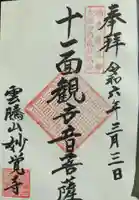 奉拝
令和六年三月三日
十一面観世音菩薩
雲騰山妙覚寺